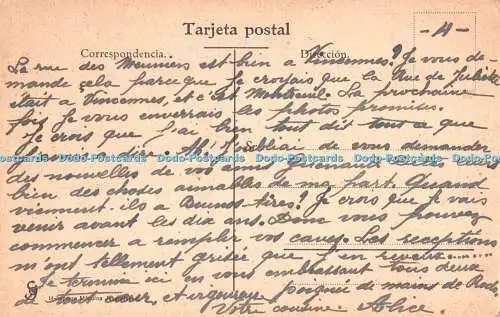 Tarjeta postal
-4-
Correspondencia. Dirección.
La rue des Meuniers est bien à Vincennes? Je vous de-
mande cela parce que je croyais que la Rue de
était à Vincennes, et c'est Montreuil. La prochaine
fois je vous enverrais les photos promises.
Je crois que j'ai bien tout dit tout ce que
Ah! J'oubliai de vous demander
des nouvelles de vos amis
bien des choses aimables de ma part. Quand
viennent-ils à Buenos-Aires? Je crois que je vais
venir avant les dix ans. Donc vous pouvez
commencer à remplir vos caves. Les réceptions
m'ont tellement grisée que j'en
Je termine ici en vous embrassant tous deux
de tout cœur, et vigoureuse poignée de mains de
Votre cousine Alice.
Dodo-Postcards